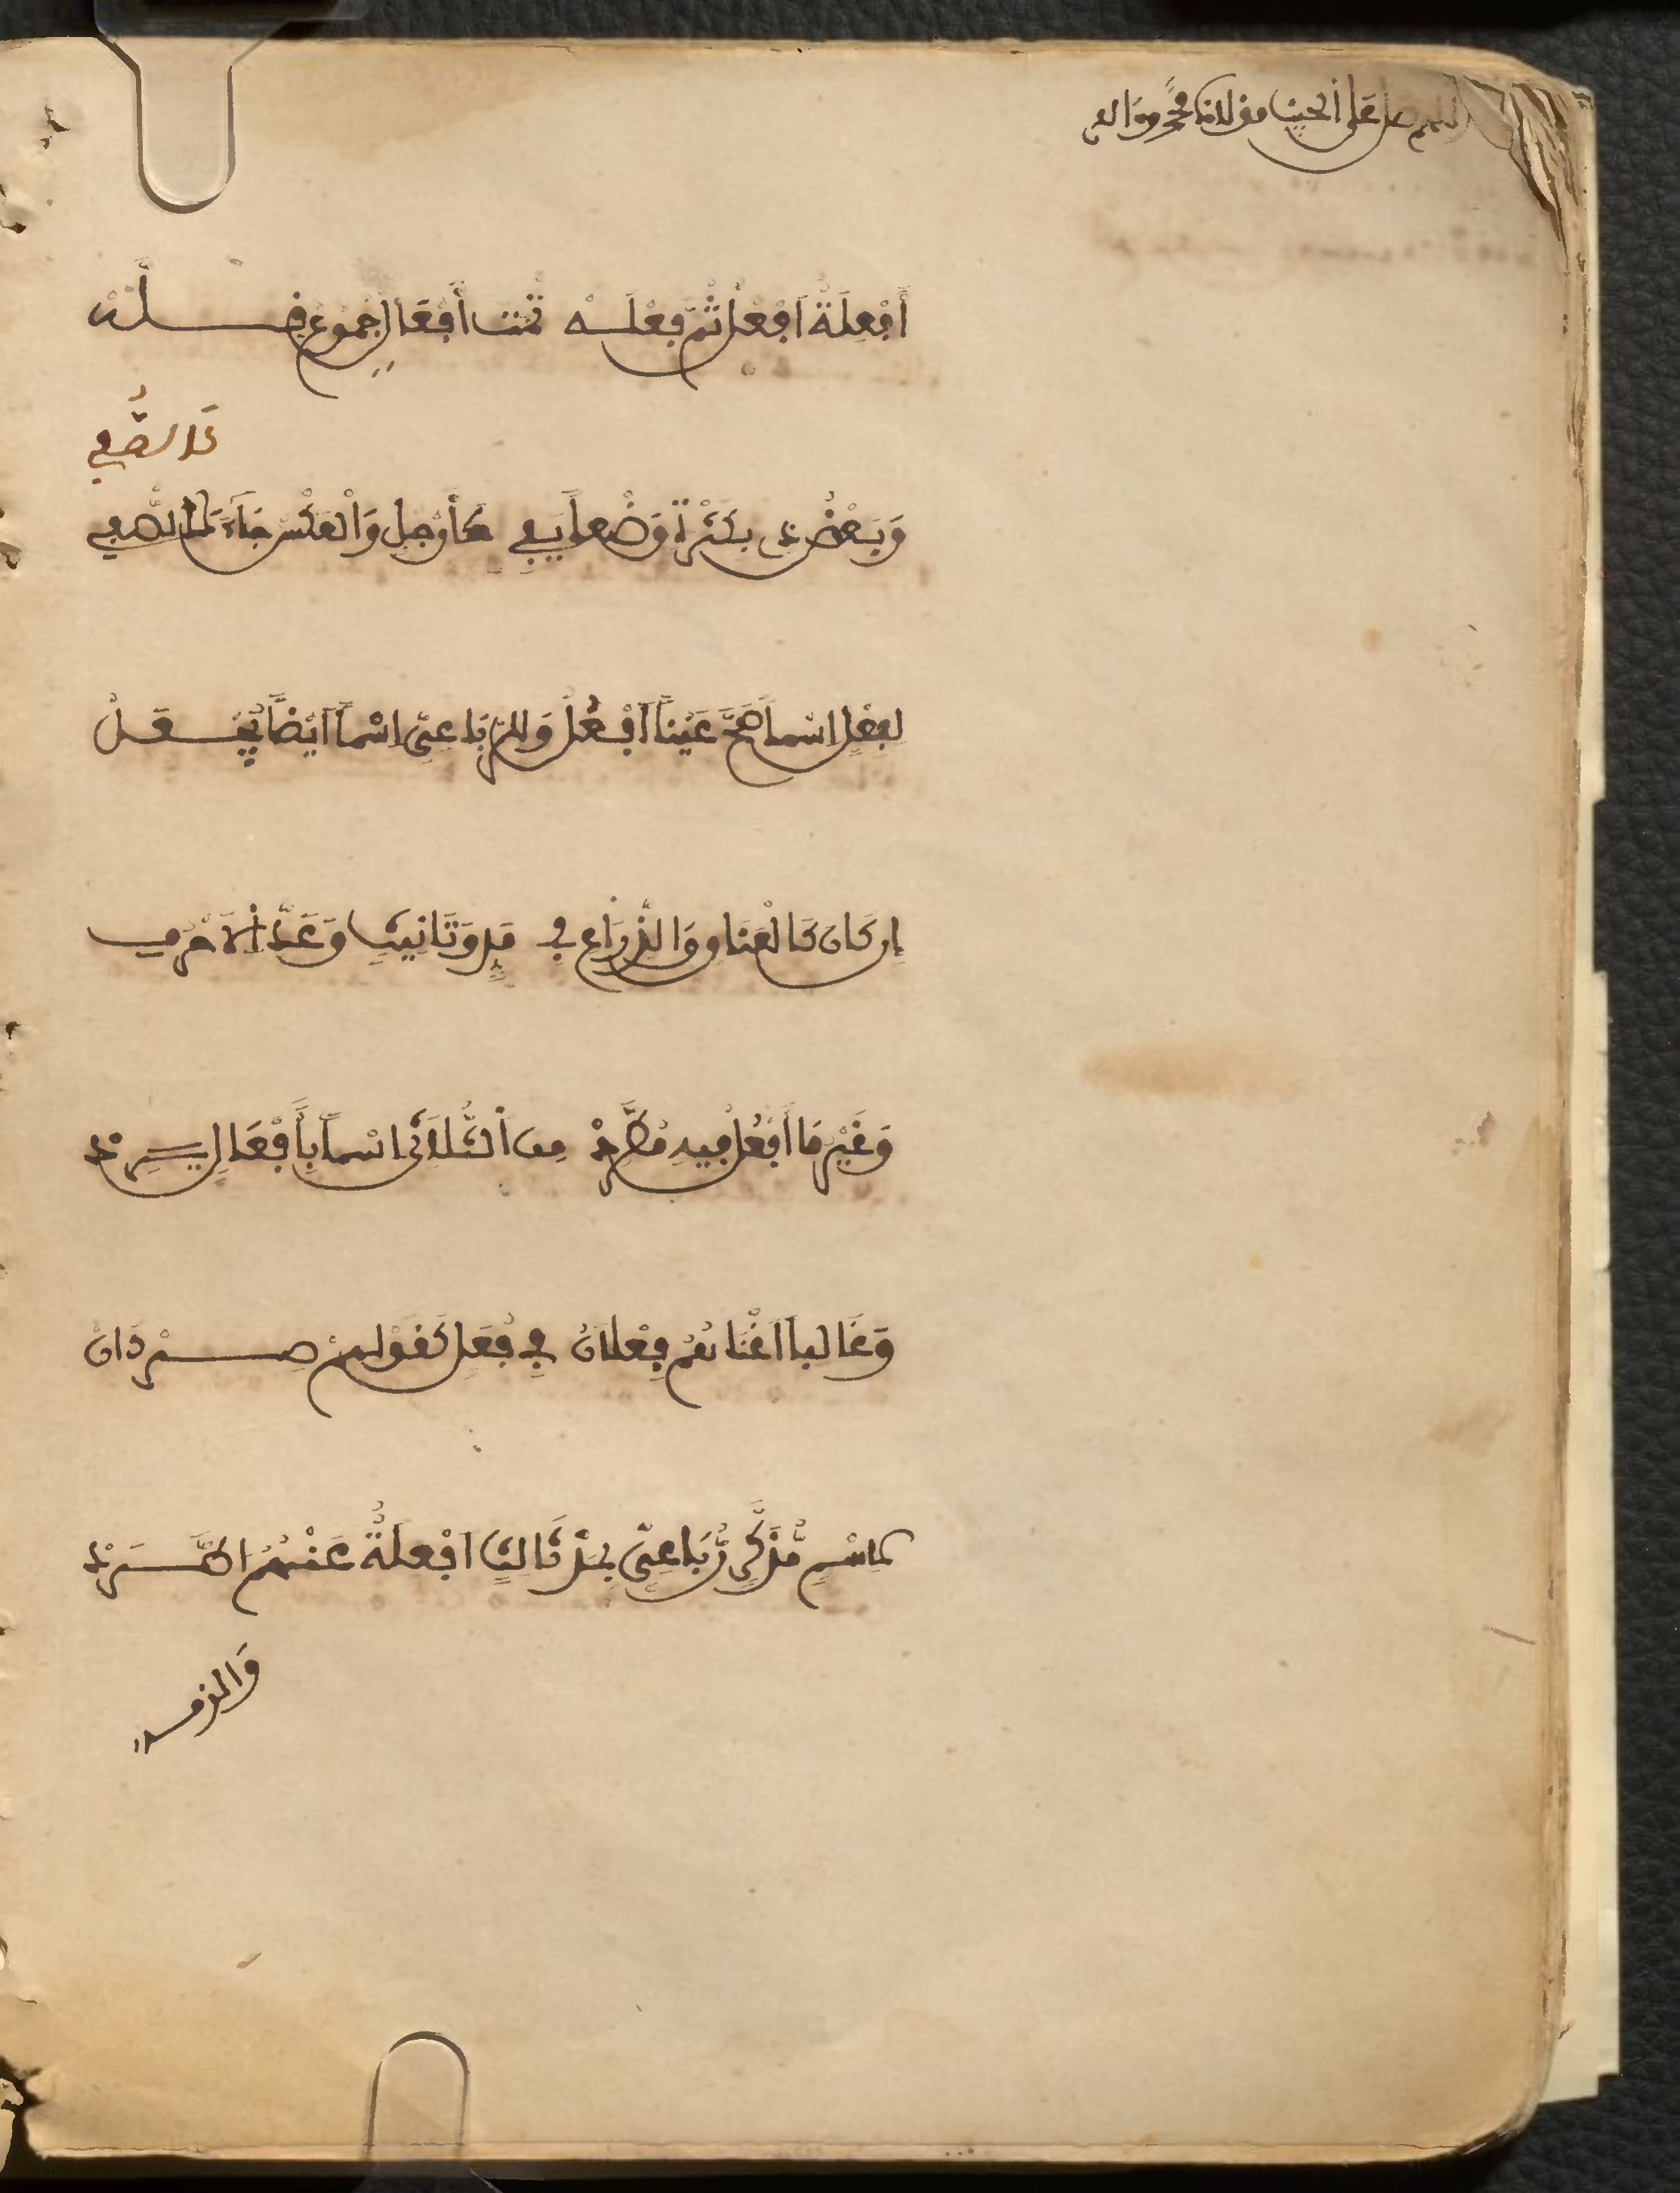 اللهم صل على الحبيب مولانا محمد وواله
أَفْعِلَةٌ اَفْعُلُ ثُمَّ فِعْلَهْ ثُمَّتَ أَفْعَالٌ جُمُوعُ قِلَّهْ
كَالصُّفِي
وَبَعْضُ ذِي بِكَثْرَةٍ وَضْعاً يَفِي كَأَرْجُلٍ وَالْعَكْسُ جَاءَ كَالصُّفِي
لِفَعْلٍ اسْماً صَحَّ عَيْناً اَفْعُلُ وَلِلرُّبَاعِيِّ اسْماً اَيْضاً يُجْعَلُ
إِن كَانَ كَالْعَنَاقِ وَالذِّرَاعِ فِي مَدٍّ وَتَانِيثٍ وَعَدِّ الْاَحْرُفِ
وَغَيْرُ مَا أَفْعُلُ فِيهِ مُطَّرِدْ مِنَ الثُّلَاثِي اسْماً بِأَفْعَالٍ يَرِدْ
وَغَالِباً اَغْنَاهُمُ فِعْلَانُ فِي فُعَلٍ كَقَوْلِهِمْ صِرْدَانُ
فِي اسْمٍ مُّذَكَّرٍ رُّبَاعِيٍّ بِمَدْ ثَالِثٍ اَفْعِلَةُ عَنْهُمُ اطَّرَدْ
وَالزمه